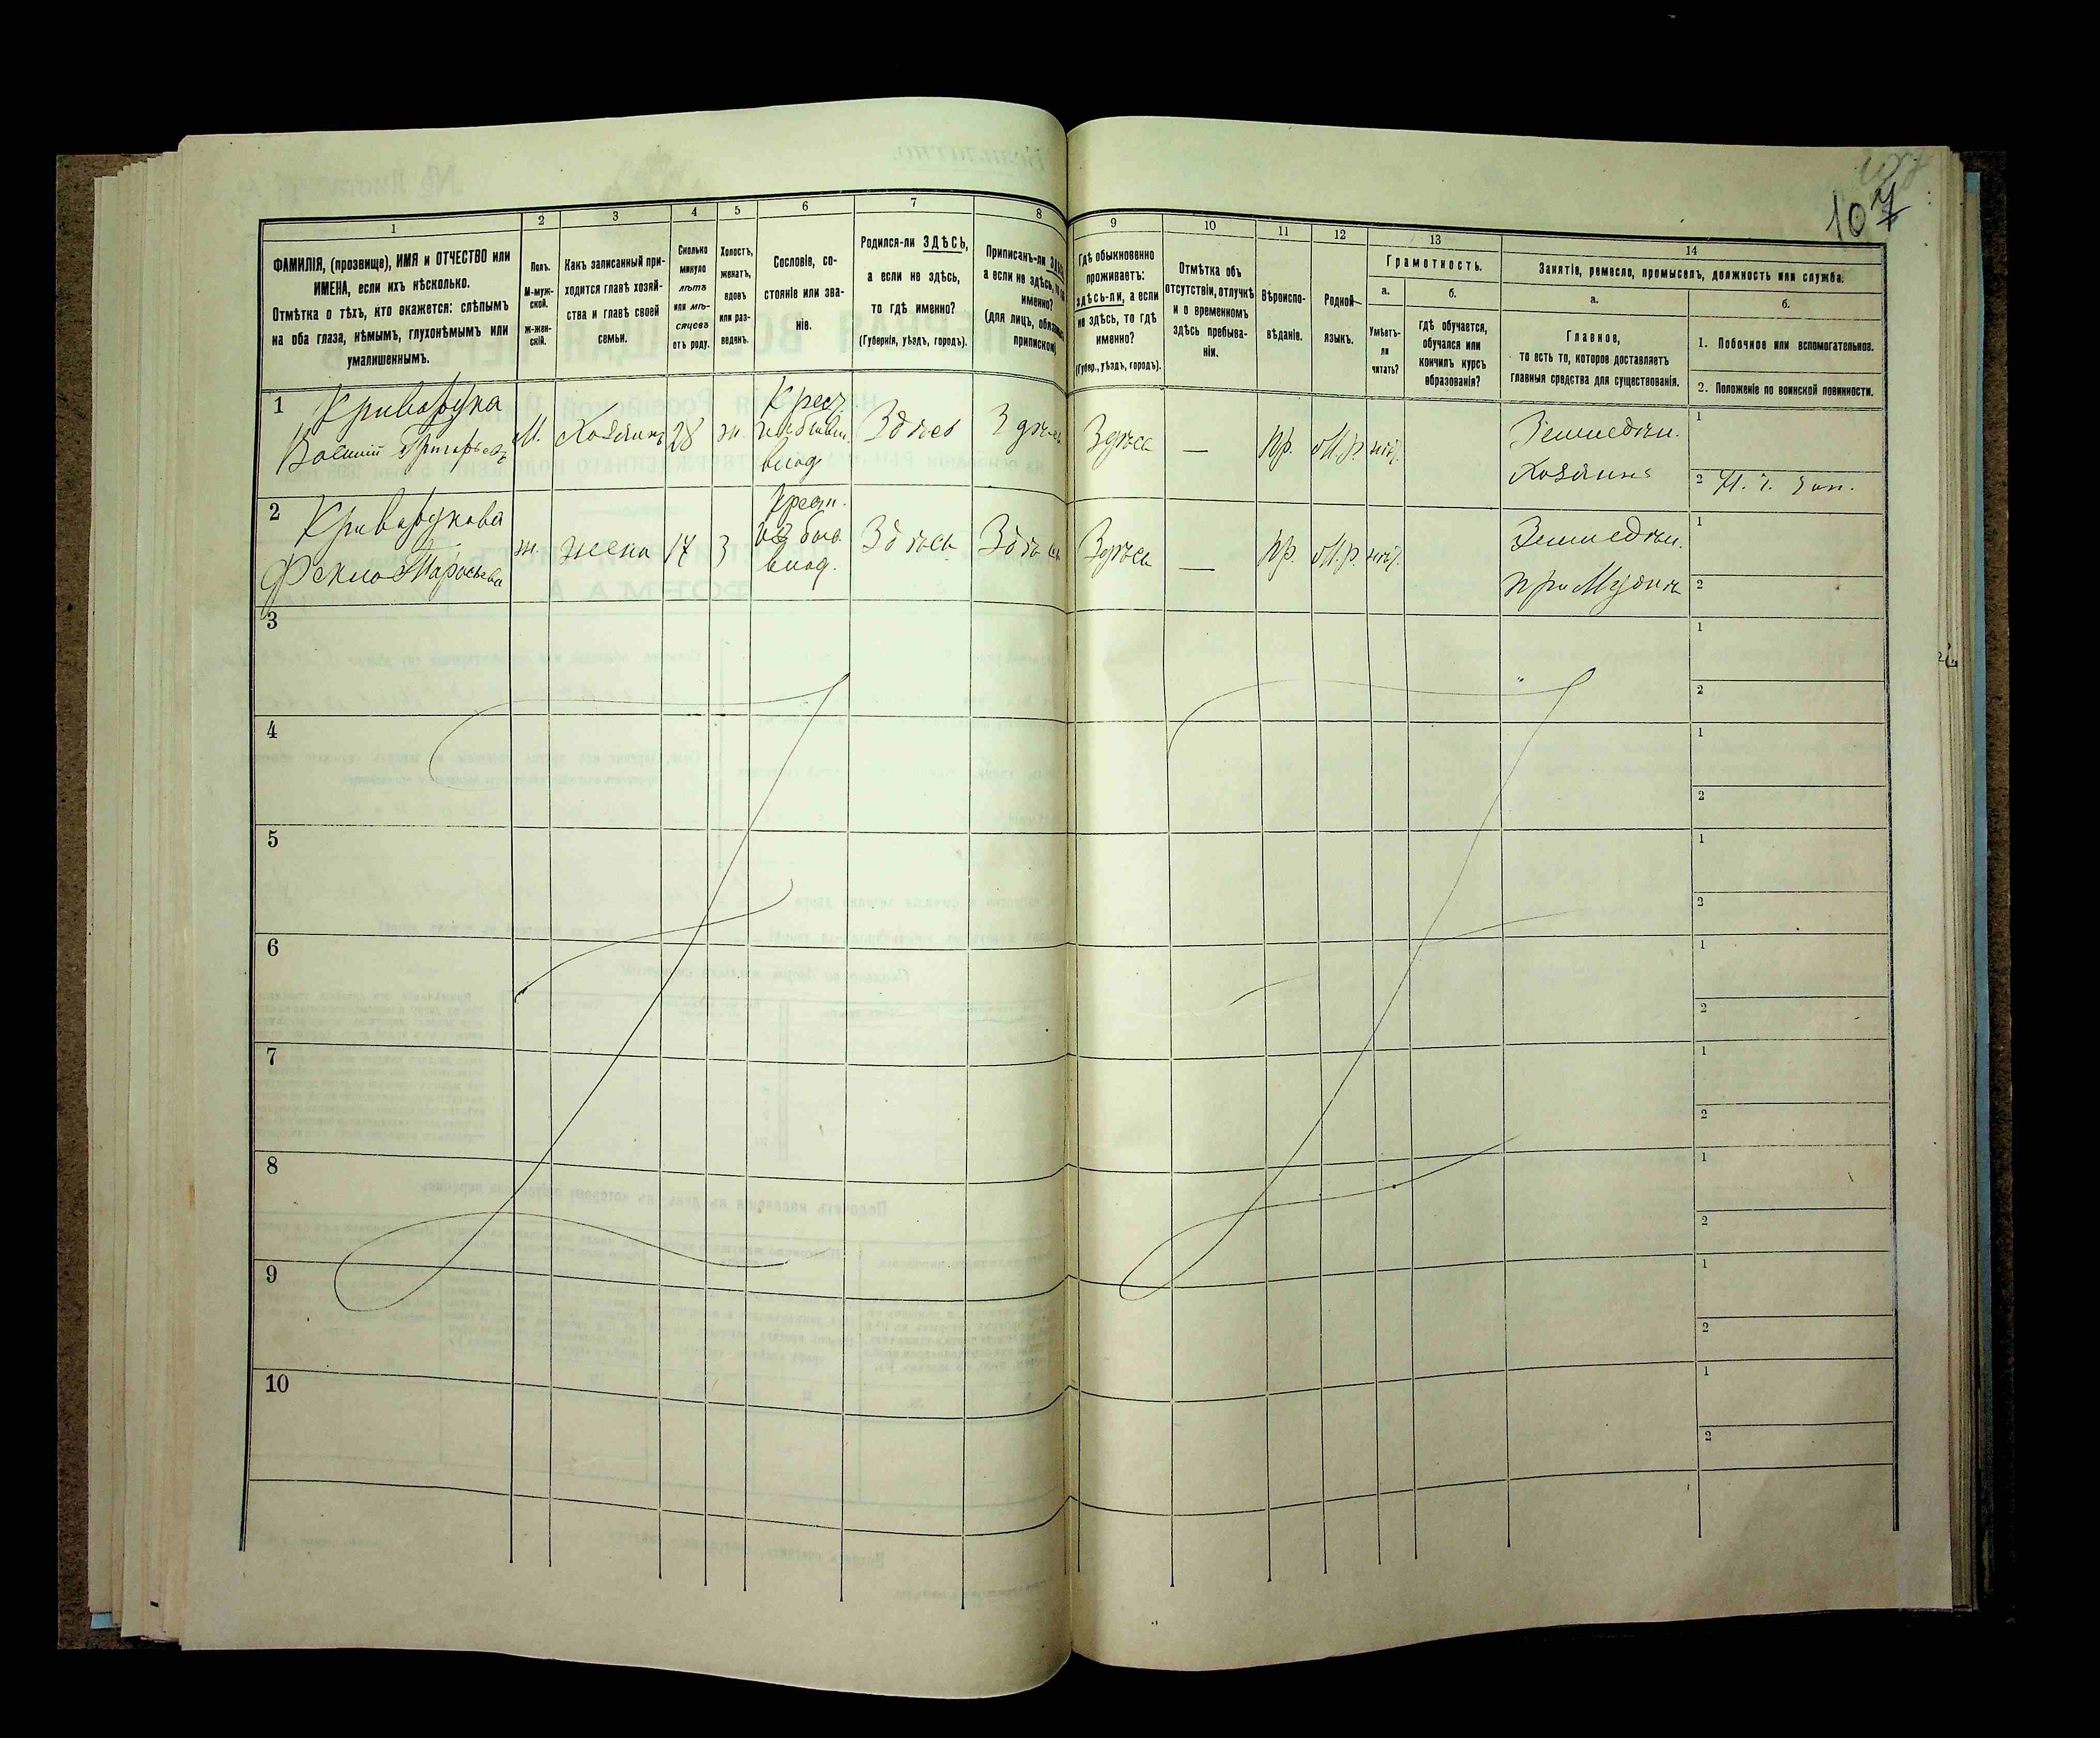 107
1
ФАМИЛІЯ, (прозвище), ИМЯ и ОТЧЕСТВО или
ИМЕНА, если ихъ нѣсколько.
Отмѣтка о тѣхъ, кто окажется: слѣпымъ
на оба глаза, нѣмымъ, глухонѣмымъ или
умалишеннымъ.
2
Полъ.
М-муж-
ской.
Ж-жен-
скій.
3
Какъ записанный при-
ходится главѣ хозяй-
ства и главѣ своей
семьи.
4
Сколько
минуло
лѣтъ
или мѣ-
сяцевъ
отъ роду.
5
Холостъ,
женатъ,
вдовъ
или раз-
веденъ.
6
Сословіе, со-
стояніе или зва-
ніе.
7
Родился-ли ЗДѢСЬ,
а если не здѣсь,
то гдѣ именно?
(Губернія, уѣздъ, городъ).
8
Приписанъ-ли
а если не здѣсь,
именно?
(для лицъ,
припиской)
9
Гдѣ обыкновенно
проживаетъ:
здѣсь-ли, а если
не здѣсь, то гдѣ
именно?
(Губер., уѣздъ, городъ).
10
Отмѣтка объ
отсутствіи, отлучкѣ
и о временномъ
здѣсь пребыва-
ніи.
11
Вѣроиспо-
вѣданіе.
12
Родной
языкъ.
13
Грамотность.
а.
Умѣетъ-
ли
читать?
б.
Гдѣ обучается,
обучался или
кончилъ курсъ
образованія?
14
Занятіе, ремесло, промыселъ, должность или служба.
а.
Главное,
то есть то, которое доставляетъ
главныя средства для существованія.
б.
1. Побочное или вспомогательное.
2. Положеніе по воинской повинности.
1
Криворука
Василій Григорьевъ
М.
Хозяинъ
28
ж.
Крест.
влад.
Здѣсь
Здѣсь
Здѣсь
—
пр.
М.р.
нѣт.
Земледѣл.
Хозяинъ
1
2
2
Криворукова
Фекла
ж.
жена
17
З
Крест.
из быв
влад.
Здѣсь
Здѣсь
Здѣсь
—
пр.
М.р.
нѣт.
Земледѣл.
при Мужѣ
1
2
3
1
2
4
1
2
5
1
2
6
1
2
7
1
2
8
1
2
9
1
2
10
1
2